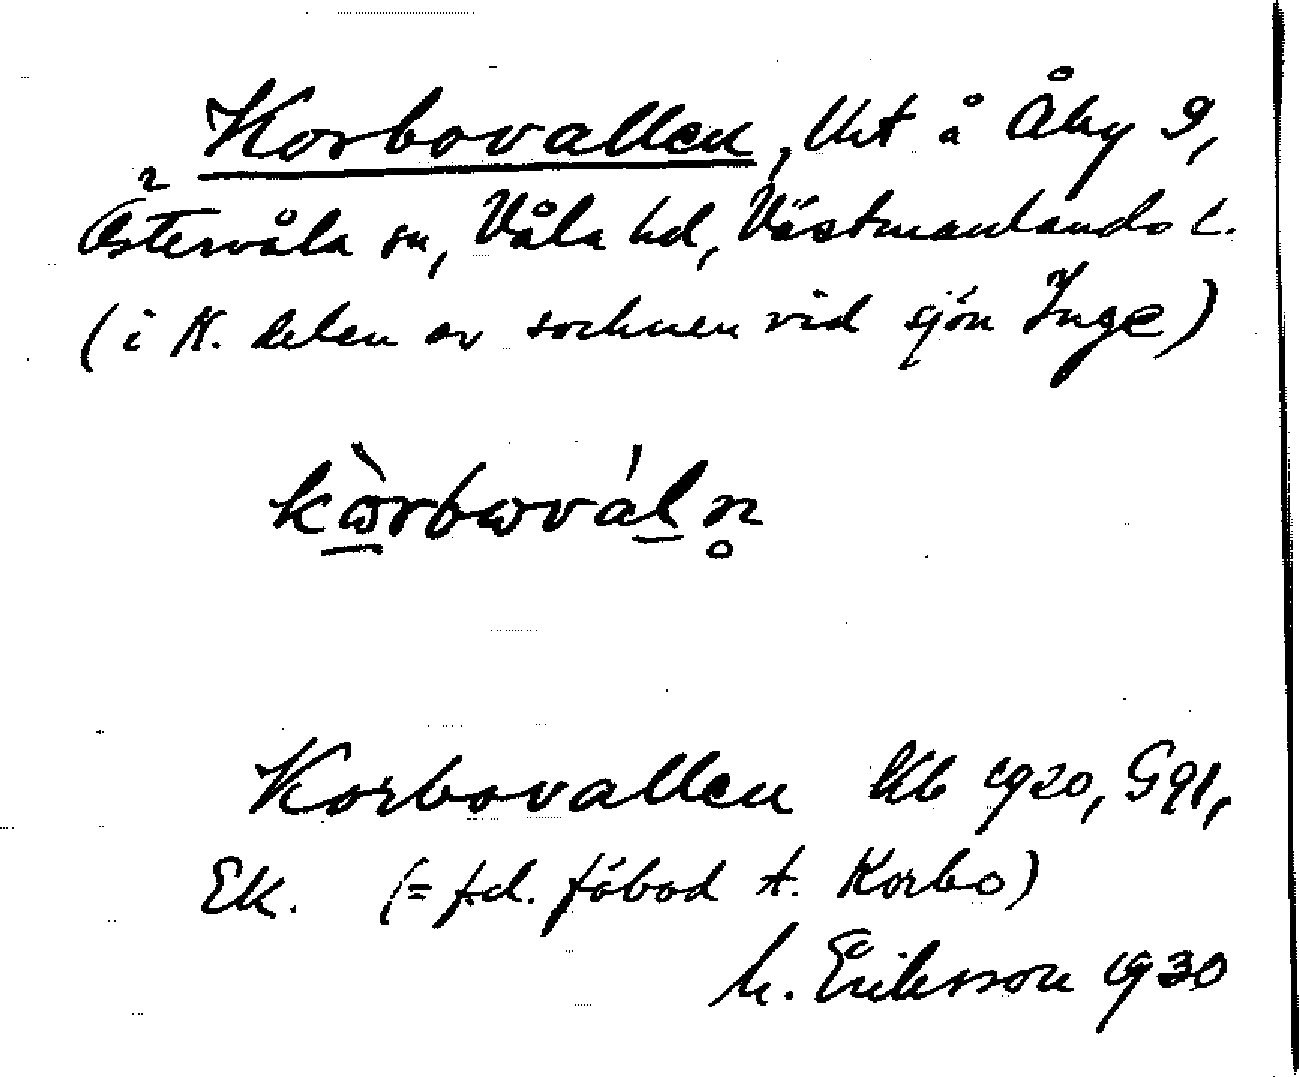 Korbovallen, lht å Åby 9,
Östervåla sn, Våla hd, Västmanlands l.
(i N. delen av socknen vid sjön Inge)
kòrbωvál̥n
Korbovallen Kb 1920, G91,
EK. (= f.d. fäbod t. Korbo)
M. Eriksson 1930